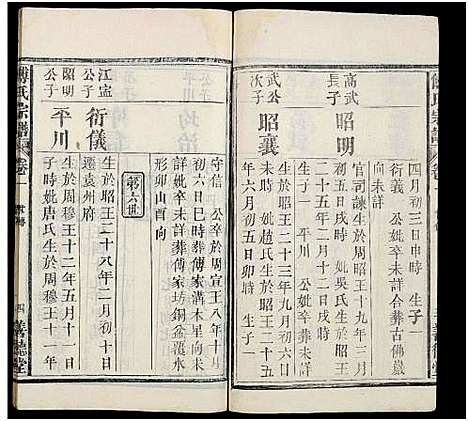 四月初三日申時 生子一
公妣卒未詳合葬古佛嚴
向未詳
高武長子 昭明
官司諫生於周昭王十九年二月
初五日戌時 妣吳氏生於昭王
二十五年二月十二日戌時
生子一 衍平川 公妣卒葬未詳
武公次子 昭襄
生於昭王二十三年九月初六日
未時 妣趙氏生於昭王二十五
年六月初五日卯時
傅氏宗譜 卷一 四 善慶堂
守信 公卒於周宣王八年十月
初六日巳時葬傅家溝木星向未
詳妣卒未詳葬傅家坊銅盆覆水
形卯山酉向
第六世
江寍公子 衍儀
生於昭王二十八年二月初十日
遷袁州府
昭明公子 平川
生於周穆王十二年五月十一日
子時妣唐氏生於周穆王十一年